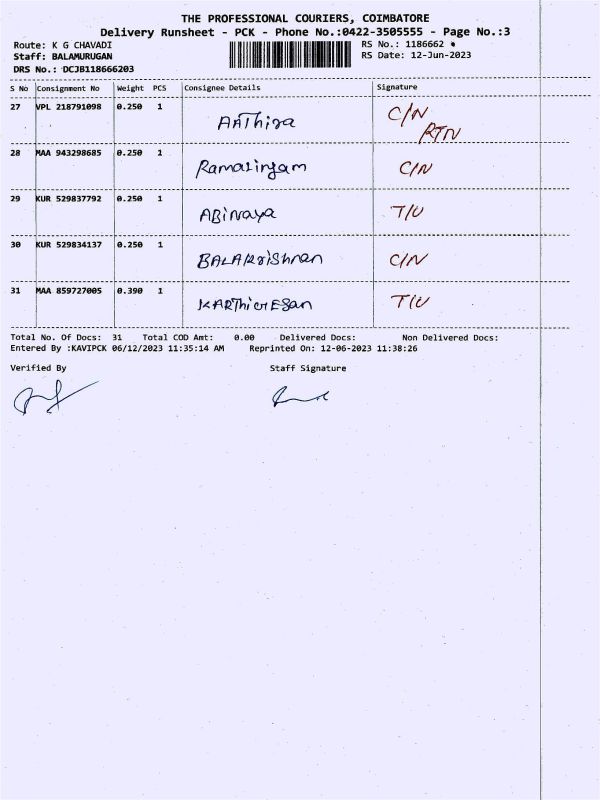 THE PROFESSIONAL COURIERS, COIMBATORE
Delivery Runsheet - PCK - Phone No.:0422-3505555 - Page No.:3
Route: K G CHAVADI RS No.: 1186662
Staff: BALAMURUGAN RS Date: 12-Jun-2023
DRS No.: DCJB118666203
S No Consignment No Weight PCS Consignee Details Signature
27 VPL 218791098 0.250 1 AAThira C/N
RTN
28 MAA 943298685 0.250 1 Ramalingam C/N
29 KUR 529837792 0.250 1 ABiNaya T/U
30 KUR 529834137 0.250 1 BALAKriShnan C/N
31 MAA 859727005 0.390 1 KARThiGESan T/U
Total No. Of Docs: 31 Total COD Amt: 0.00 Delivered Docs: Non Delivered Docs:
Entered By :KAVIPCK 06/12/2023 11:35:14 AM Reprinted On: 12-06-2023 11:38:26
Verified By Staff Signature